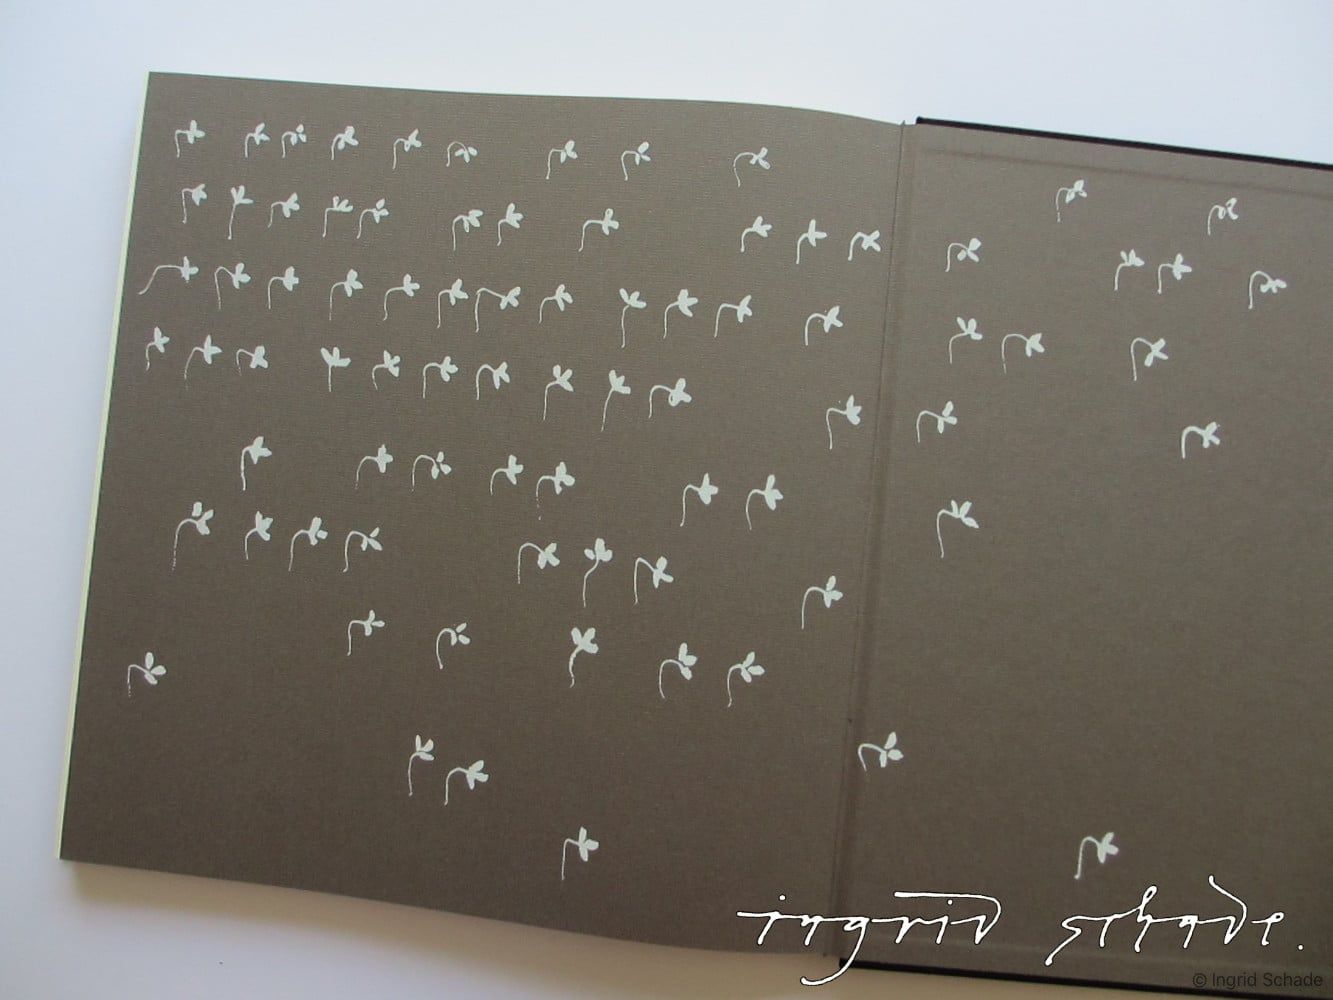 ingrid schade.
© Ingrid Schade